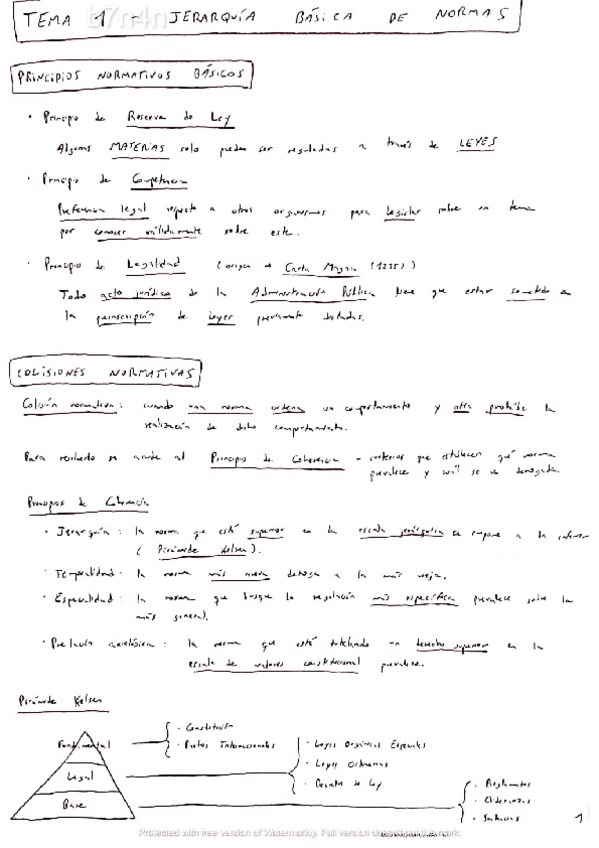 TEMA 1 - JERARQUÍA BÁSICA DE NORMAS
b7n4n
PRINCIPIOS NORMATIVOS BÁSICOS
· Principio de Reserva de Ley
Algunas MATERIAS solo pueden ser reguladas a través de LEYES
· Principio de Competencia
Preferencia legal respecto a otros organismos para legislar sobre un tema
por conocer válidamente sobre este.
· Principio de Legalidad (origen → Carta Magna (1215))
Todo acto jurídico de la Administración Pública tiene que estar sometido a
la prescripción de leyes previamente dictadas.
COLISIONES NORMATIVAS
Colisión normativa: cuando una norma ordena un comportamiento y otra prohíbe la
realización de dicho comportamiento.
Para resolverlo se acude al Principio de Coherencia - criterios que establecen qué norma
prevalece y cuál se ve derogada.
Principios de Coherencia
· Jerarquía: la norma que esté superior en la escala jerárquica se impone a la inferior
(Pirámide Kelsen).
· Temporalidad: la norma más nueva deroga a la más vieja.
· Especialidad: la norma que busque la resolución más específica prevalece sobre la
más general.
· Prelación axiológica: la norma que esté tutelando un derecho superior en la
escala de valores constitucional prevalece.
Pirámide Kelsen
Fundamental
· Constitución
· Tratos Internacionales
Legal
· Leyes Orgánicas Especiales
· Leyes Ordinarias
· Decreto de Ley
Base
· Reglamentos
· Ordenanzas
· Sentencias
1
Protected with free version of Watermarkly. Full version doesn't put this mark.